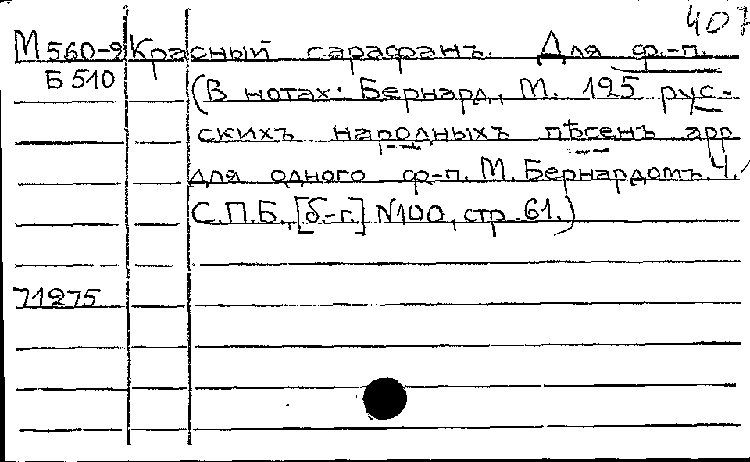 407
М 560-9 Красный сарафанъ. Для ф.-п.
Б 510 (В нотах: Бернард, М. 125 рус-
скихъ народныхъ пѣсенъ арр
для одного ф-п. М. Бернардомъ. Ч. 
С.П.Б., [б-г.] N100, стр. 61.)
71275